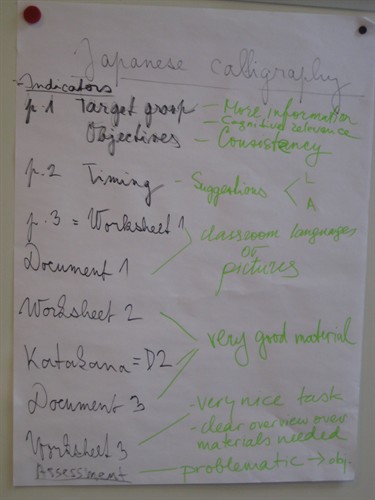 Japanese calligraphy
- Indicators
p.1 Target group - More information
- Cognitive relevance
Objectives - Consistency
p.2 Timing - Suggestions < L
A
p.3 = Worksheet 1
classroom languages
or
pictures
Document 1
Worksheet 2
very good material
Katakana = D2
Document 3 - very nice task
- clear overview over
materials needed
Worksheet 3
Assessment - problematic → obj.